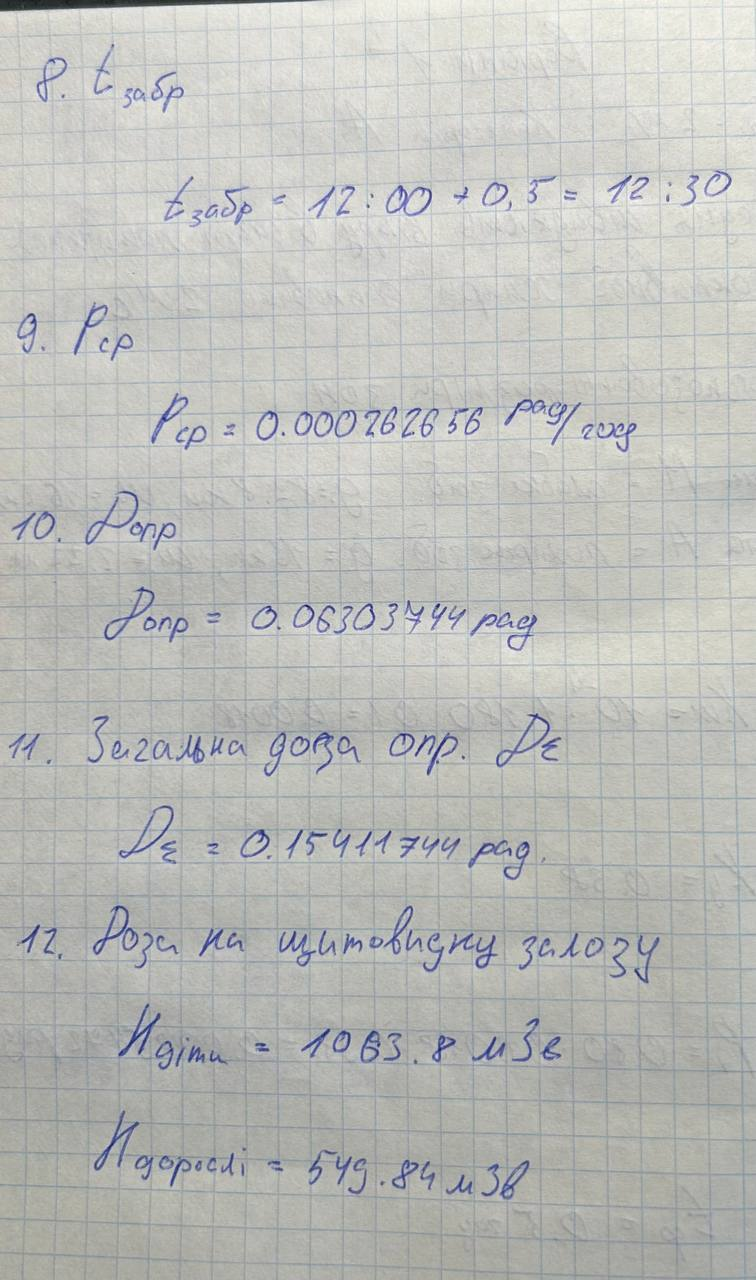 8. t забр
t забр = 12:00 + 0,5 = 12:30
9. Pср
Pср = 0.000262656 рад/год
10. Dопр
Dопр = 0.06303744 рад
11. Загальна доза опр. Dε
Dε = 0.15411744 рад.
12. Доза на щитовидну залозу
Hдіти = 1063.8 мЗв
Hдорослі = 549.84 мЗв